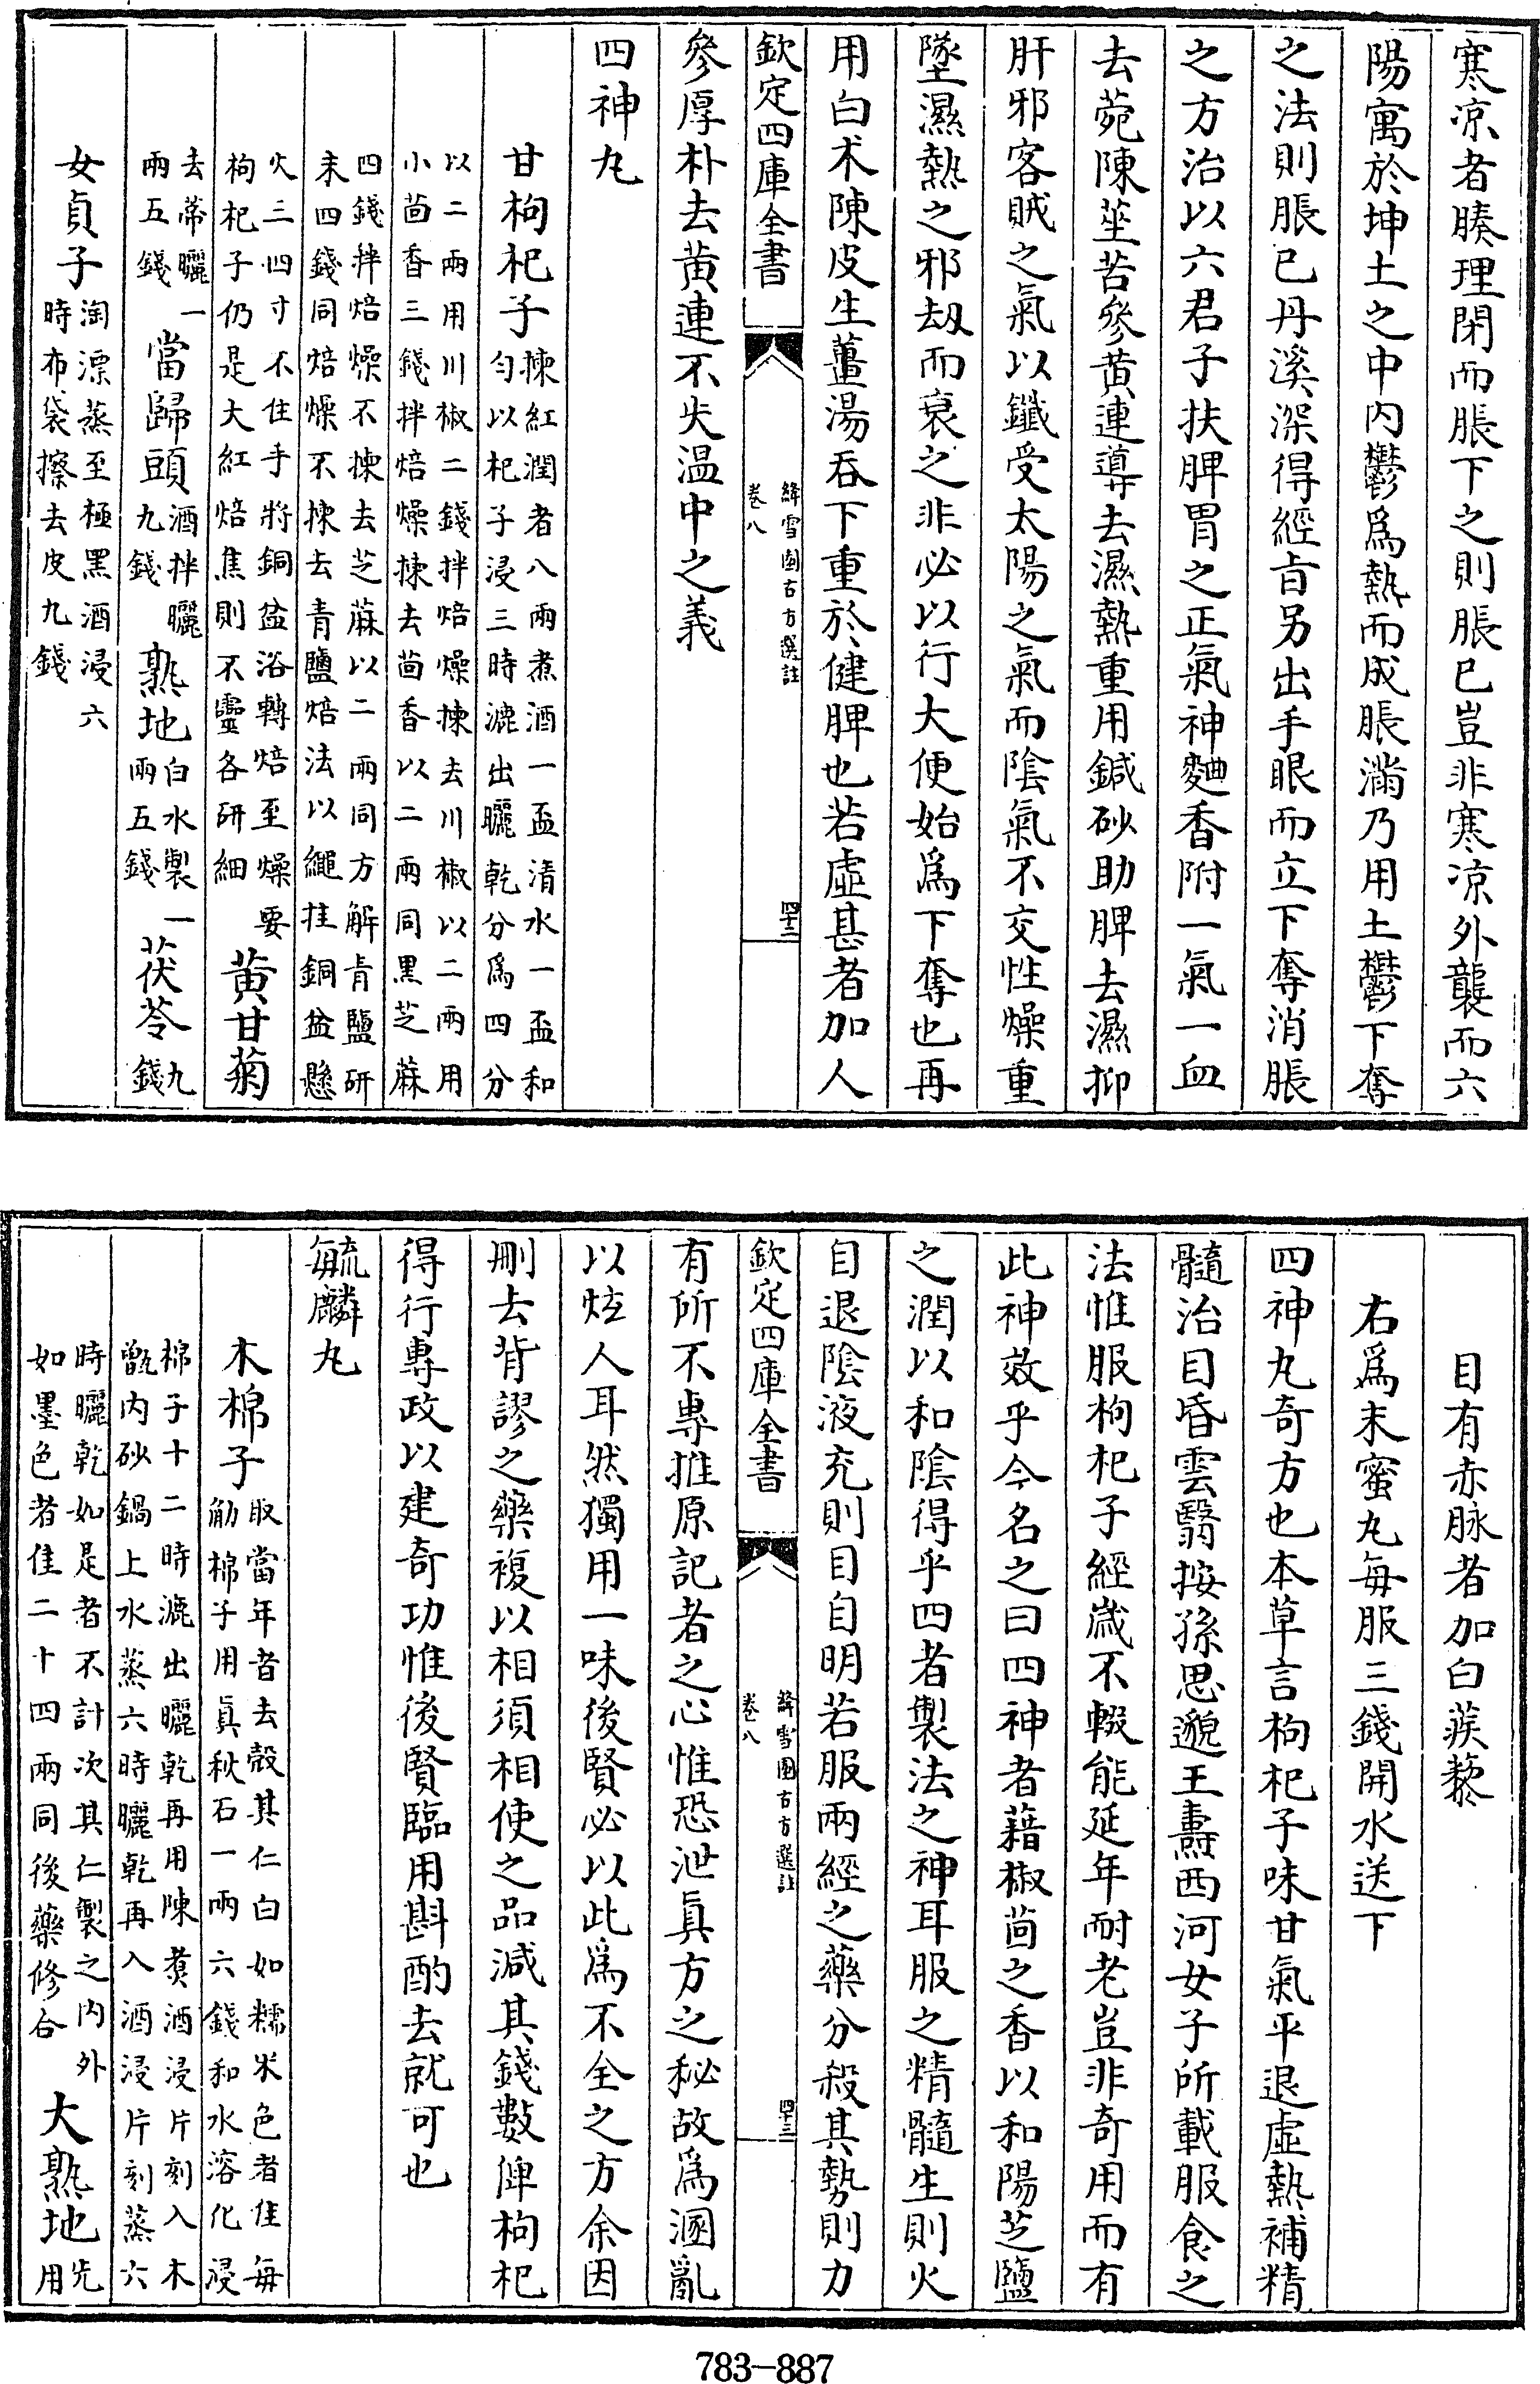 寒凉者腠理閉而脹下之則脹已豈非寒凉外襲而六
陽寓於坤土之中内鬱爲熱而成脹滿乃用土鬱下奪
之法則脹已丹溪深得經旨另出手眼而立下奪消脹
之方治以六君子扶脾胃之正氣神麯香附一氣一血
去菀陳莝苦參黄連導去濕熱重用鍼砂助脾去濕抑
肝邪客賊之氣以鐵受太陽之氣而陰氣不交性燥重
墜濕熱之邪刼而衰之非必以行大便始爲下奪也再
用白朮陳皮生薑湯吞下重於健脾也若虛甚者加人
欽定四庫全書
絳雪園古方選註
卷八
四十二
參厚朴去黄連不失温中之義
四神丸
甘枸杞子揀紅潤者八兩煮酒一盃清水一盃和
勻以杞子浸三時漉出曬乾分爲四分
以二兩用川椒二錢拌焙燥揀去川椒以二兩用
小茴香三錢拌焙燥揀去茴香以二兩同黑芝蔴
四錢拌焙燥不揀去芝蔴以二兩同方解青鹽研
末四錢同焙燥不揀去青鹽焙法以繩挂銅盆懸
火三四寸不住手將銅盆浴轉焙至燥要
枸杞子仍是大紅焙焦則不靈各研細黄甘菊
去蒂曬一
兩五錢當歸頭酒拌曬
九錢熟地白水製一
兩五錢茯苓九
錢
女貞子淘漂蒸至極黑酒浸六
時布袋擦去皮九錢
目有赤脉者加白蒺藜
右爲末蜜丸每服三錢開水送下
四神丸奇方也本草言枸杞子味甘氣平退虛熱補精
髓治目昏雲翳按孫思邈王燾西河女子所載服食之
法惟服枸杞子經歲不輟能延年耐老豈非奇用而有
此神效乎今名之曰四神者藉椒茴之香以和陽芝鹽
之潤以和陰得乎四者製法之神耳服之精髓生則火
自退陰液充則目自明若服兩經之藥分殺其勢則力
欽定四庫全書
絳雪園古方選註
卷八
四十三
有所不專推原記者之心惟恐泄眞方之秘故爲溷亂
以炫人耳然獨用一味後賢必以此爲不全之方余因
刪去背謬之藥複以相須相使之品減其錢數俾枸杞
得行專政以建奇功惟後賢臨用斟酌去就可也
毓麟丸
木棉子取當年者去殼其仁白如糯米色者佳每
觔棉子用眞秋石一兩六錢和水溶化浸
棉子十二時漉出曬乾再用陳煑酒浸片刻入木
甑内砂鍋上水蒸六時曬乾再入酒浸片刻蒸六
時曬乾如是者不計次其仁製之内外
如墨色者佳二十四兩同後藥修合大熟地先
用
783-887